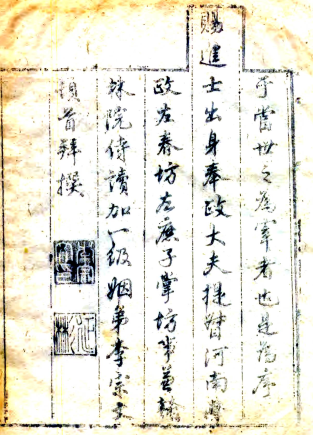 于當世之為宰者也是為序
賜進士出身奉政大夫提督河南學
政左春坊左庶子掌坊事兼翰
林院侍讀加一級姻弟李宗文
頓首拜撰